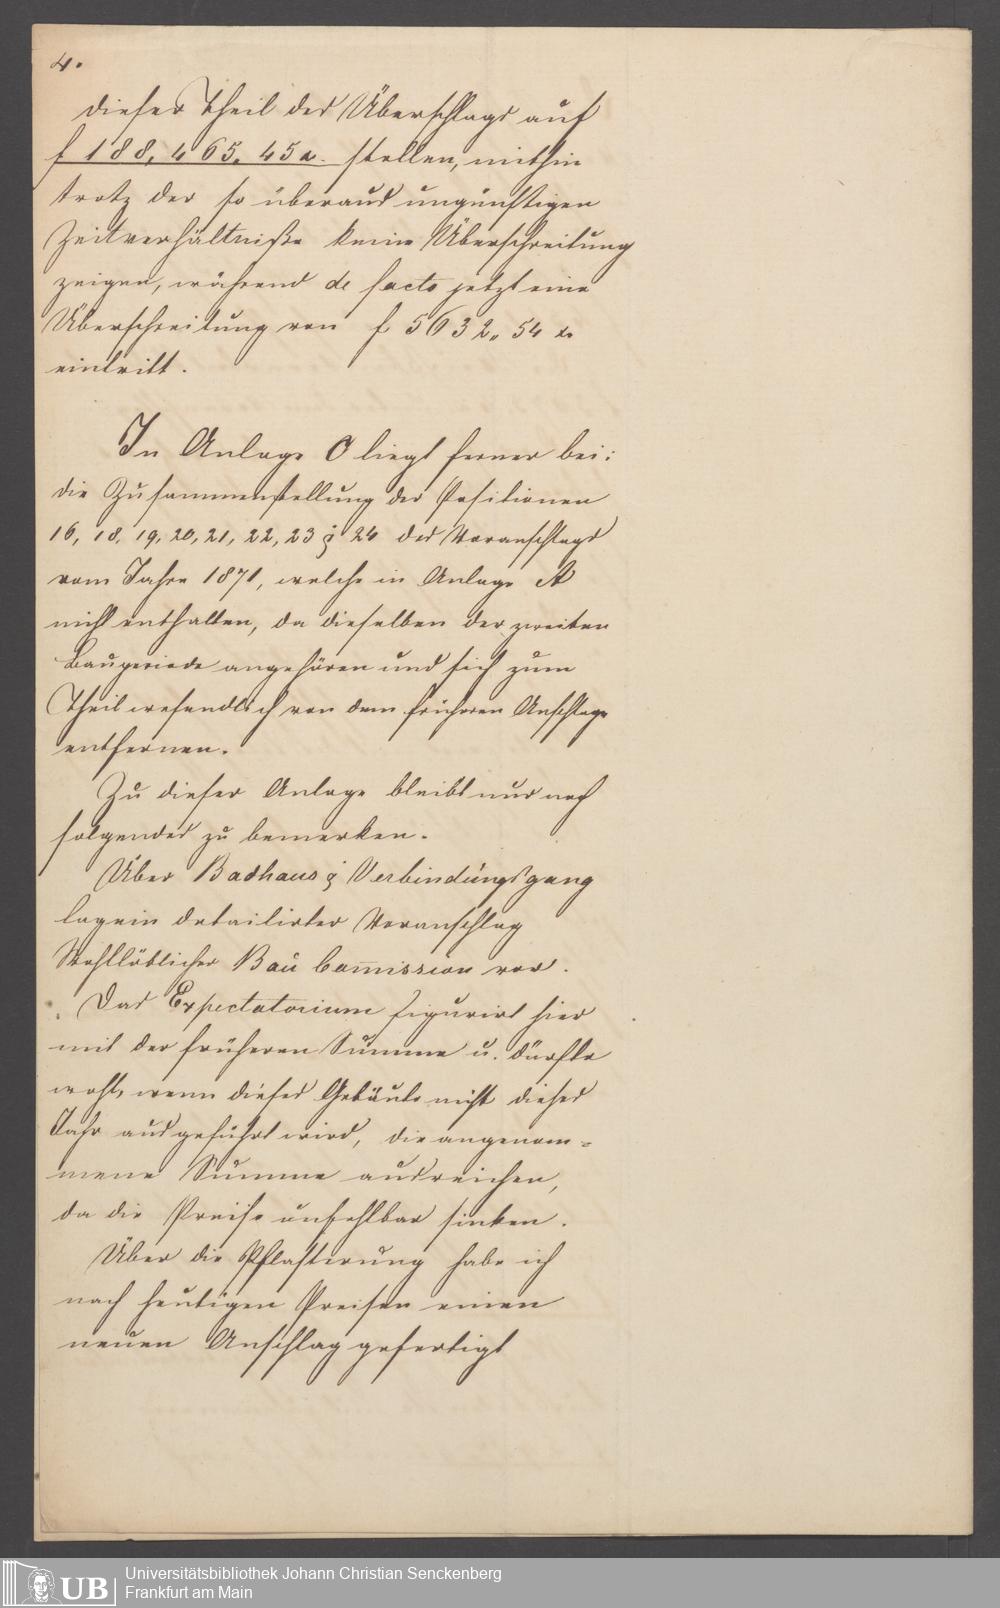 4.
dieser Theil des Überschlags auf
f 188,465. 45 x. stellen, mithin
trotz der so überaus ungünstigen
Zeitverhältniße keine Überschreitung
zeigen, während de facto jetzt eine
Überschreitung von f 5632„ 54 x.
eintritt.
In Anlage C liegt ferner bei:
die Zusammenstellung der Positionen
16, 18, 19, 20, 21, 22, 23 & 24 des Voranschlags
vom Jahre 1871, welche in Anlage A
nicht enthalten, da dieselben der zweiten
Bauperiode angehören und sich zum
Theil wesendlich von dem früheren Anschlage
entfernen.
Zu dieser Anlage bleibt nur noch
folgendes zu bemerken.
Über Badhaus & Verbindungsgang
lag ein detailirter Voranschlag
Wohllöblicher Bau Com̅ission vor.
Das Expectatorium figurirt hier
mit der früheren Summe u. dürfte
wohl, wenn dieses Gebäude nicht dieses
Jahr ausgeführt wird, die angenom=
mene Summe ausreichen,
da die Preise unfehlbar sinken.
Über die Pflasterung habe ich
nach heutigen Preisen einen
neuen Anschlag gefertigt
UB
Universitätsbibliothek Johann Christian Senckenberg
Frankfurt am Main